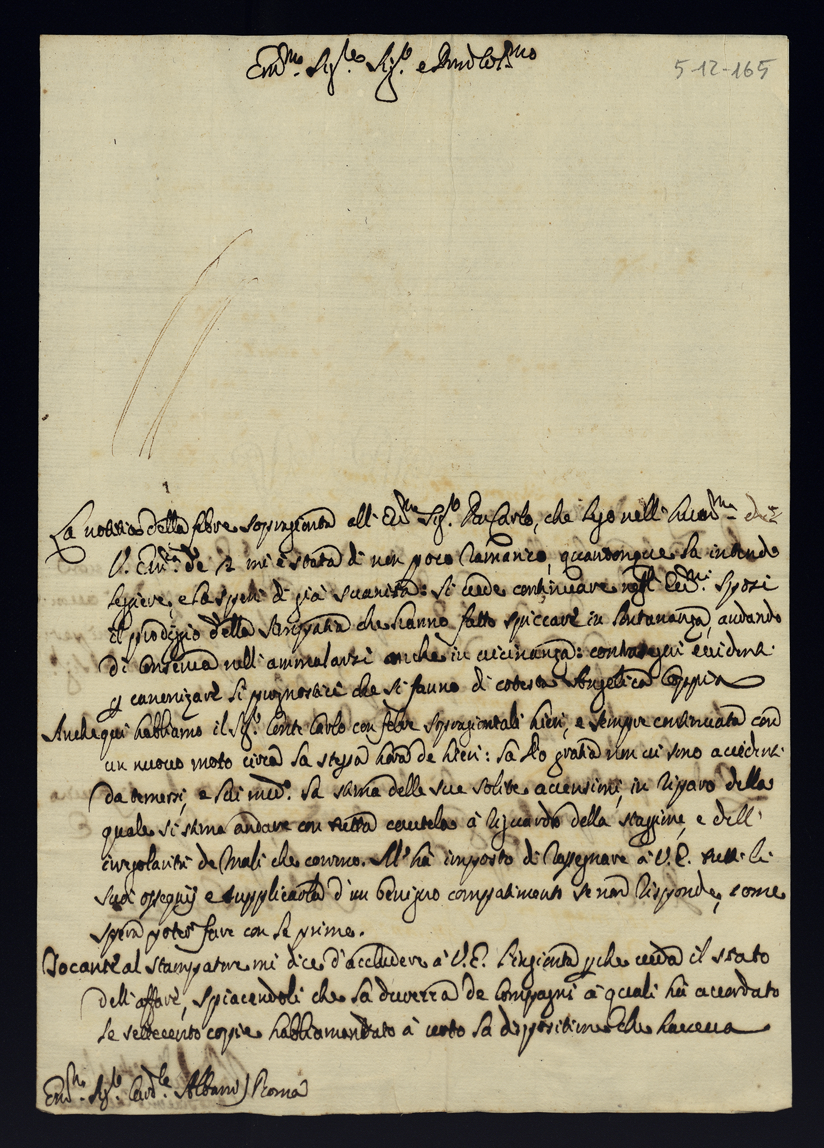 Em.mo Sig.re Sig.r e Pron Col.mo
5-12-165
La notitia della febre sopragionta all' Ecc.mo Sig.r Don Carlo, che lego nell' human.ma di
V. Em.za de 12 mi è stata di non poco ramarico, quantonque la intendo
legiere, e la speri di già suanita: si uede continuare negl' Ecc.mi sposi
il prodigio della simpatia che hanno fatto spiccare in lontananza, andando
di conserua nell' ammalarsi anche in uicinanza: contrasegni euidenti
p canonizare li prognostici che si fanno di cotesta Angelica Coppia
Anche qui habbiamo il Sig.r Conte Carlo con febre sopragiontali hieri, e sempre continuata con
un nuouo moto circa la stessa hora de hieri: la Dio gratia non ui sono accidenti
da temersi, e li med.i la stima delle sue solite accensioni, in riparo della
quale si stima andare con tutta cautela à riguardo della staggione, e dell'
irregolarità de mali che corrono. M' hà imposto di rassegnare à V. E. tutti li
suoi ossequij e supplicarla d'un benigno compatimento se non risponde, come
spera poter fare con le prime.
Tocante al stampatore mi dice d'accludere à V. E. l'ingionta p che ueda il stato
dell' affare, spiacendoli che la de Compagni à quali hà accordato
le settecento copie habbia mandato à la dispositione che haueua
Em.mo Sig.r Card.le Albani) Roma